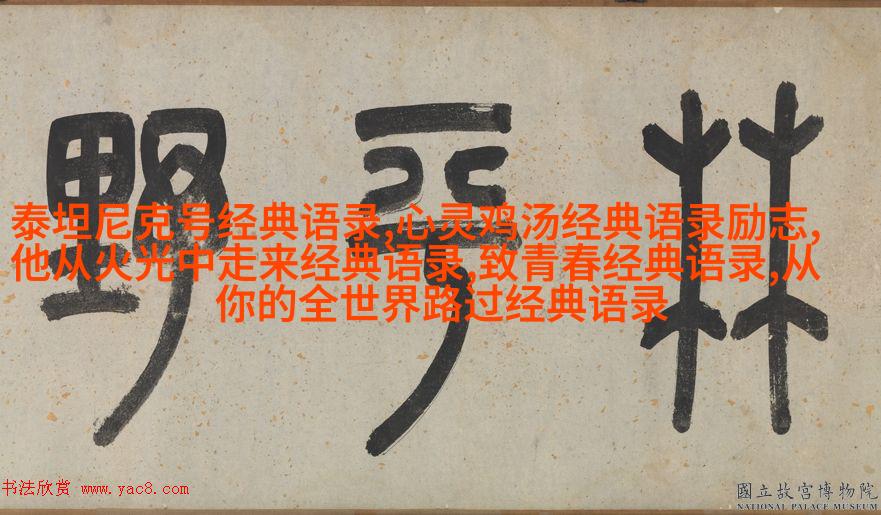 野平林
泰坦尼克号经典语录,心灵鸡汤经典语录励志,
他从火光中走来经典语录,致青春经典语录,从
你的全世界路过经典语录
书法欣赏 www.yac8.com
國立故宮博物院
NATIONAL PALACE MUSEUM